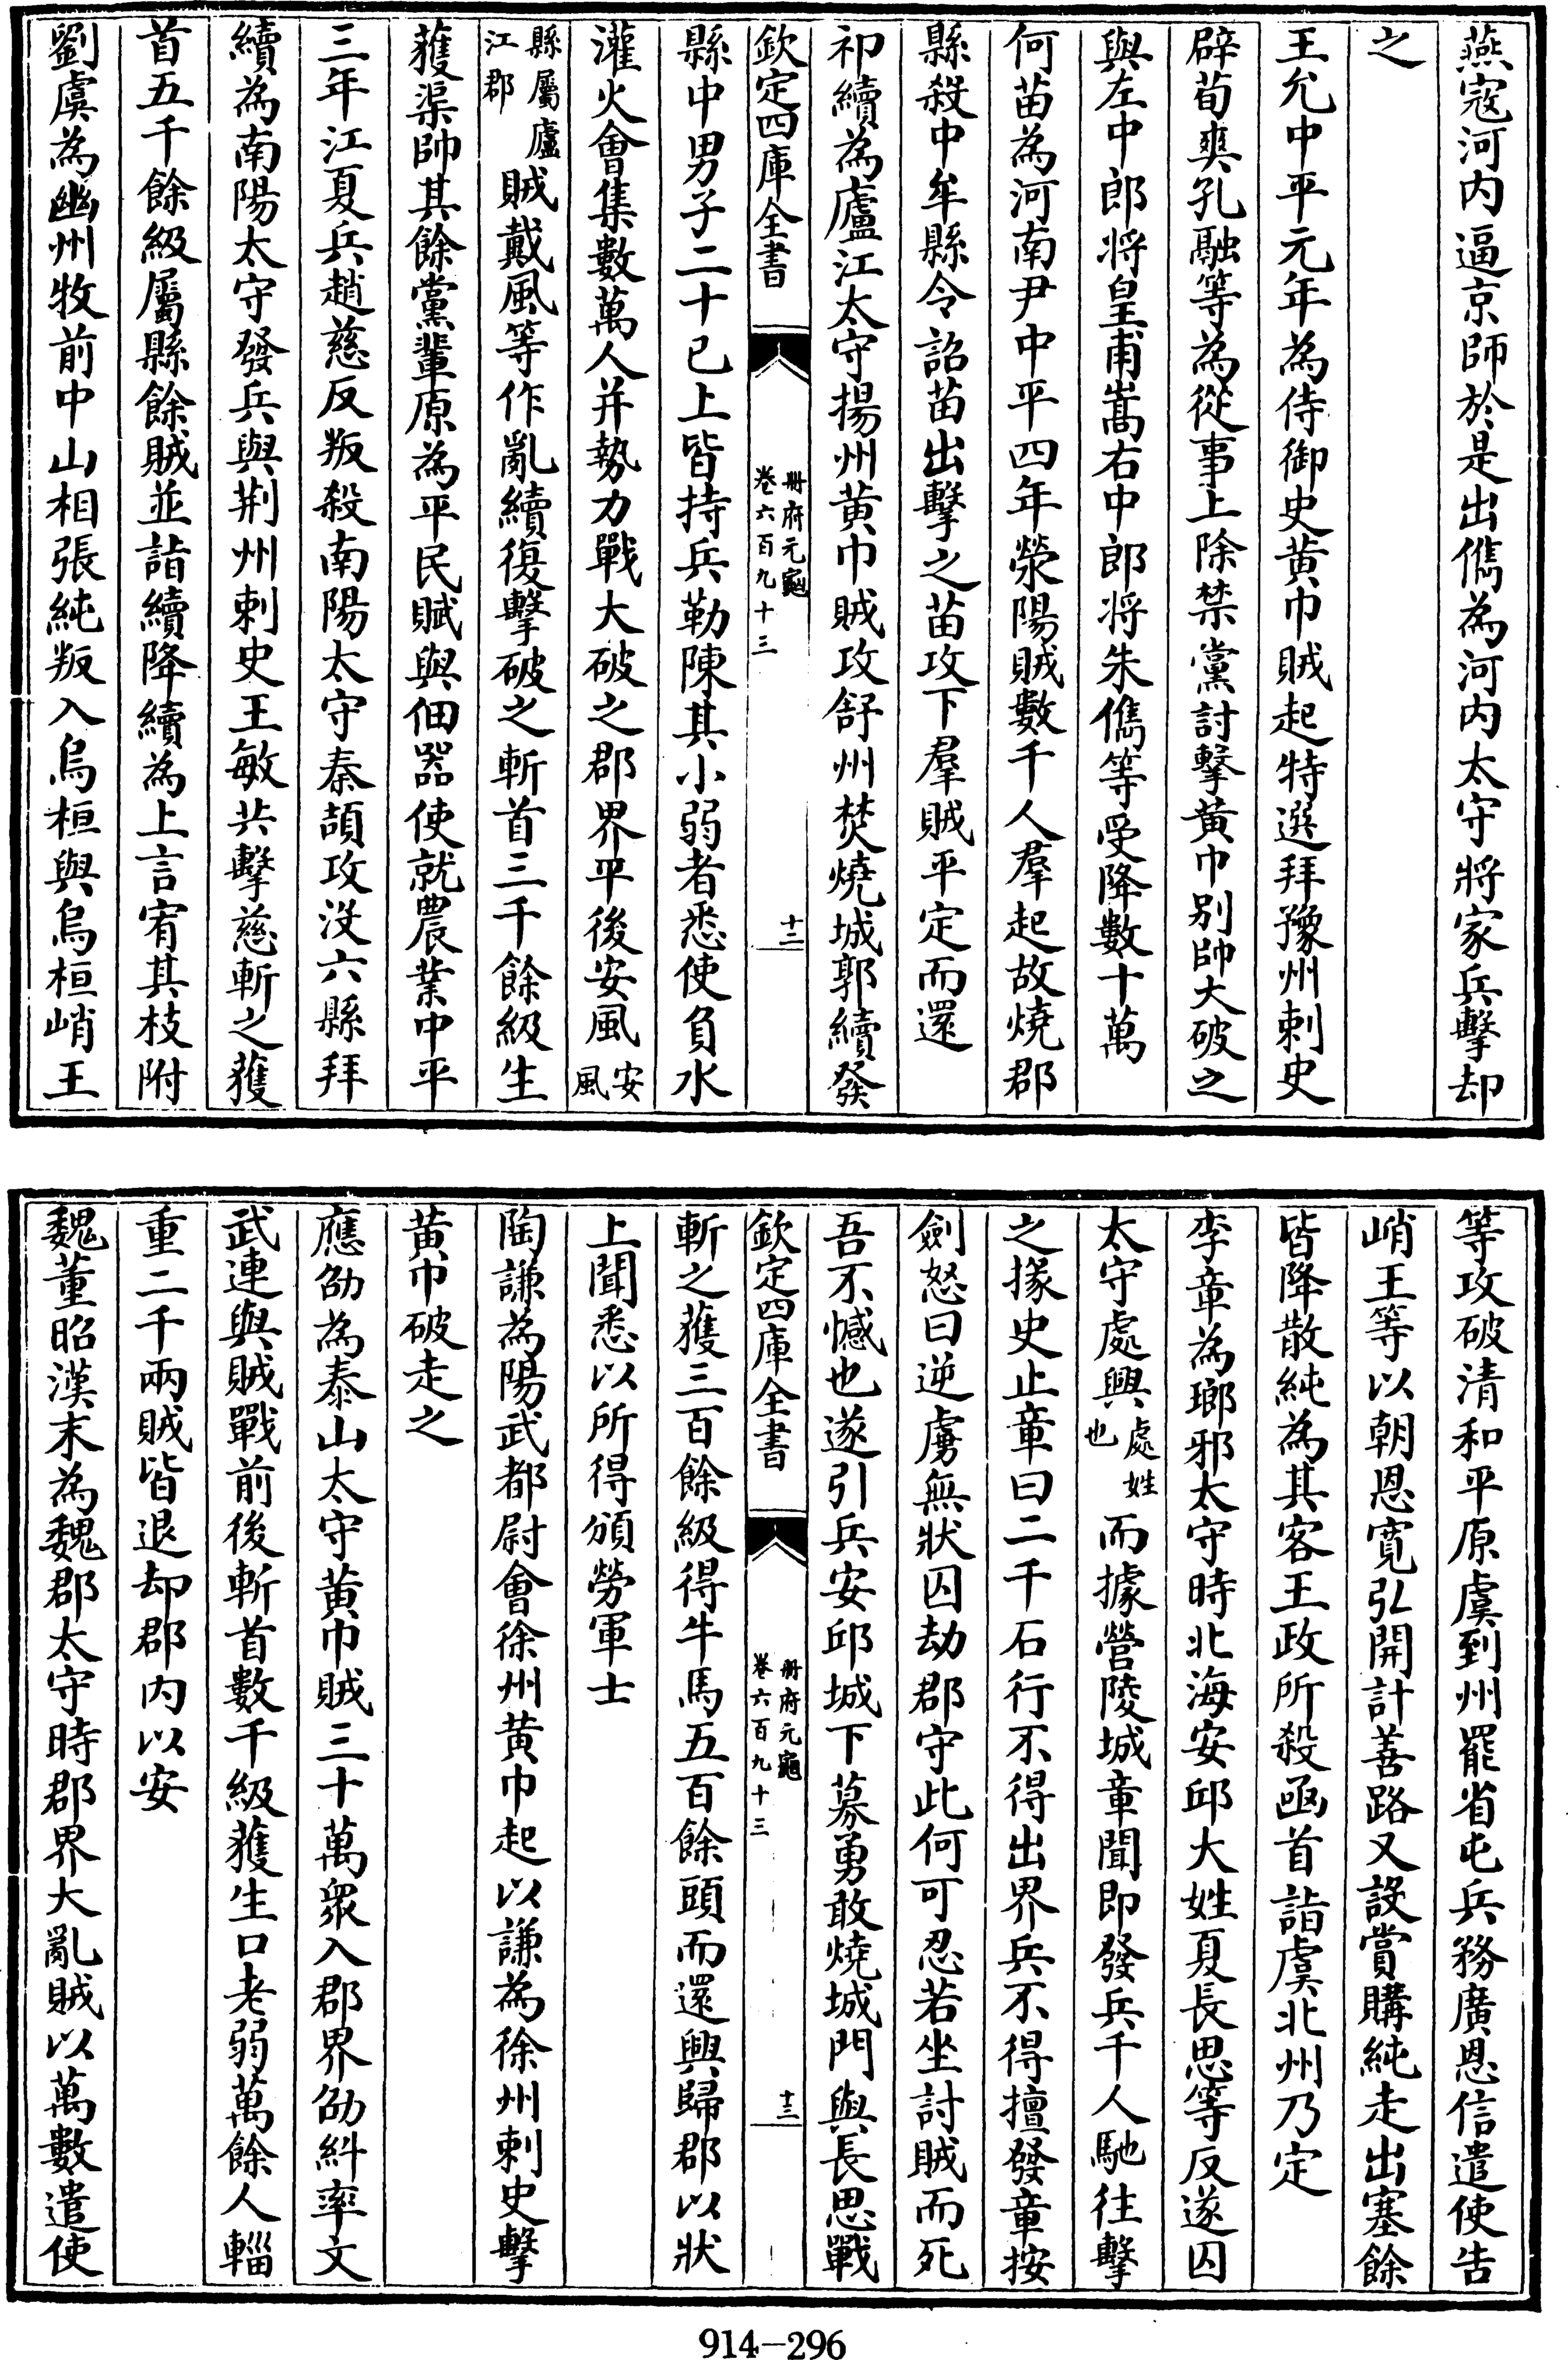 燕宼河内逼京師於是出儁為河内太守將家兵擊却
之
王允中平元年為侍御史黄巾賊起特選拜豫州刺史
辟荀爽孔融等為從事上除禁黨討擊黄巾别帥大破之
與左中郎將皇甫嵩右中郎將朱儁等受降數十萬
何苗為河南尹中平四年滎陽賊數千人羣起故燒郡
縣殺中牟縣令詔苗出擊之苗攻下羣賊平定而還
祁續為廬江太守揚州黄巾賊攻舒州焚燒城郭續發
欽定四庫全書
册府元龜
卷六百九十三
十二
縣中男子二十已上皆持兵勒陳其小弱者悉使負水
灌火會集數萬人并勢力戰大破之郡界平後安風安風
縣屬廬江郡賊戴風等作亂續復擊破之斬首三千餘級生
獲渠帥其餘黨輩原為平民賦與佃器使就農業中平
三年江夏兵趙慈反叛殺南陽太守秦頡攻没六縣拜
續為南陽太守發兵與荆州刺史王敏共擊慈斬之獲
首五千餘級屬縣餘賊並詣續降續為上言宥其枝附
劉虞為幽州牧前中山相張純叛入烏桓與烏桓峭王
等攻破清和平原虞到州罷省屯兵務廣恩信遣使告
峭王等以朝恩寛弘開計善路又設賞購純走出塞餘
皆降散純為其客王政所殺函首詣虞北州乃定
李章為瑯邪太守時北海安邱大姓夏長思等反遂囚
太守處興處姓也而據營陵城章聞即發兵千人馳往擊
之掾史止章曰二千石行不得出界兵不得擅發章按
劍怒曰逆虜無狀囚劫郡守此何可忍若坐討賊而死
吾不憾也遂引兵安邱城下募勇敢燒城門與長思戰
欽定四庫全書
册府元龜
卷六百九十三
十三
斬之獲三百餘級得牛馬五百餘頭而還興歸郡以狀
上聞悉以所得頒勞軍士
陶謙為陽武都尉會徐州黄巾起以謙為徐州刺史擊
黄巾破走之
應劭為泰山太守黄巾賊三十萬衆入郡界劭糾率文
武連與賊戰前後斬首數千級獲生口老弱萬餘人輜
重二千兩賊皆退却郡内以安
魏董昭漢末為魏郡太守時郡界大亂賊以萬數遣使
914-296